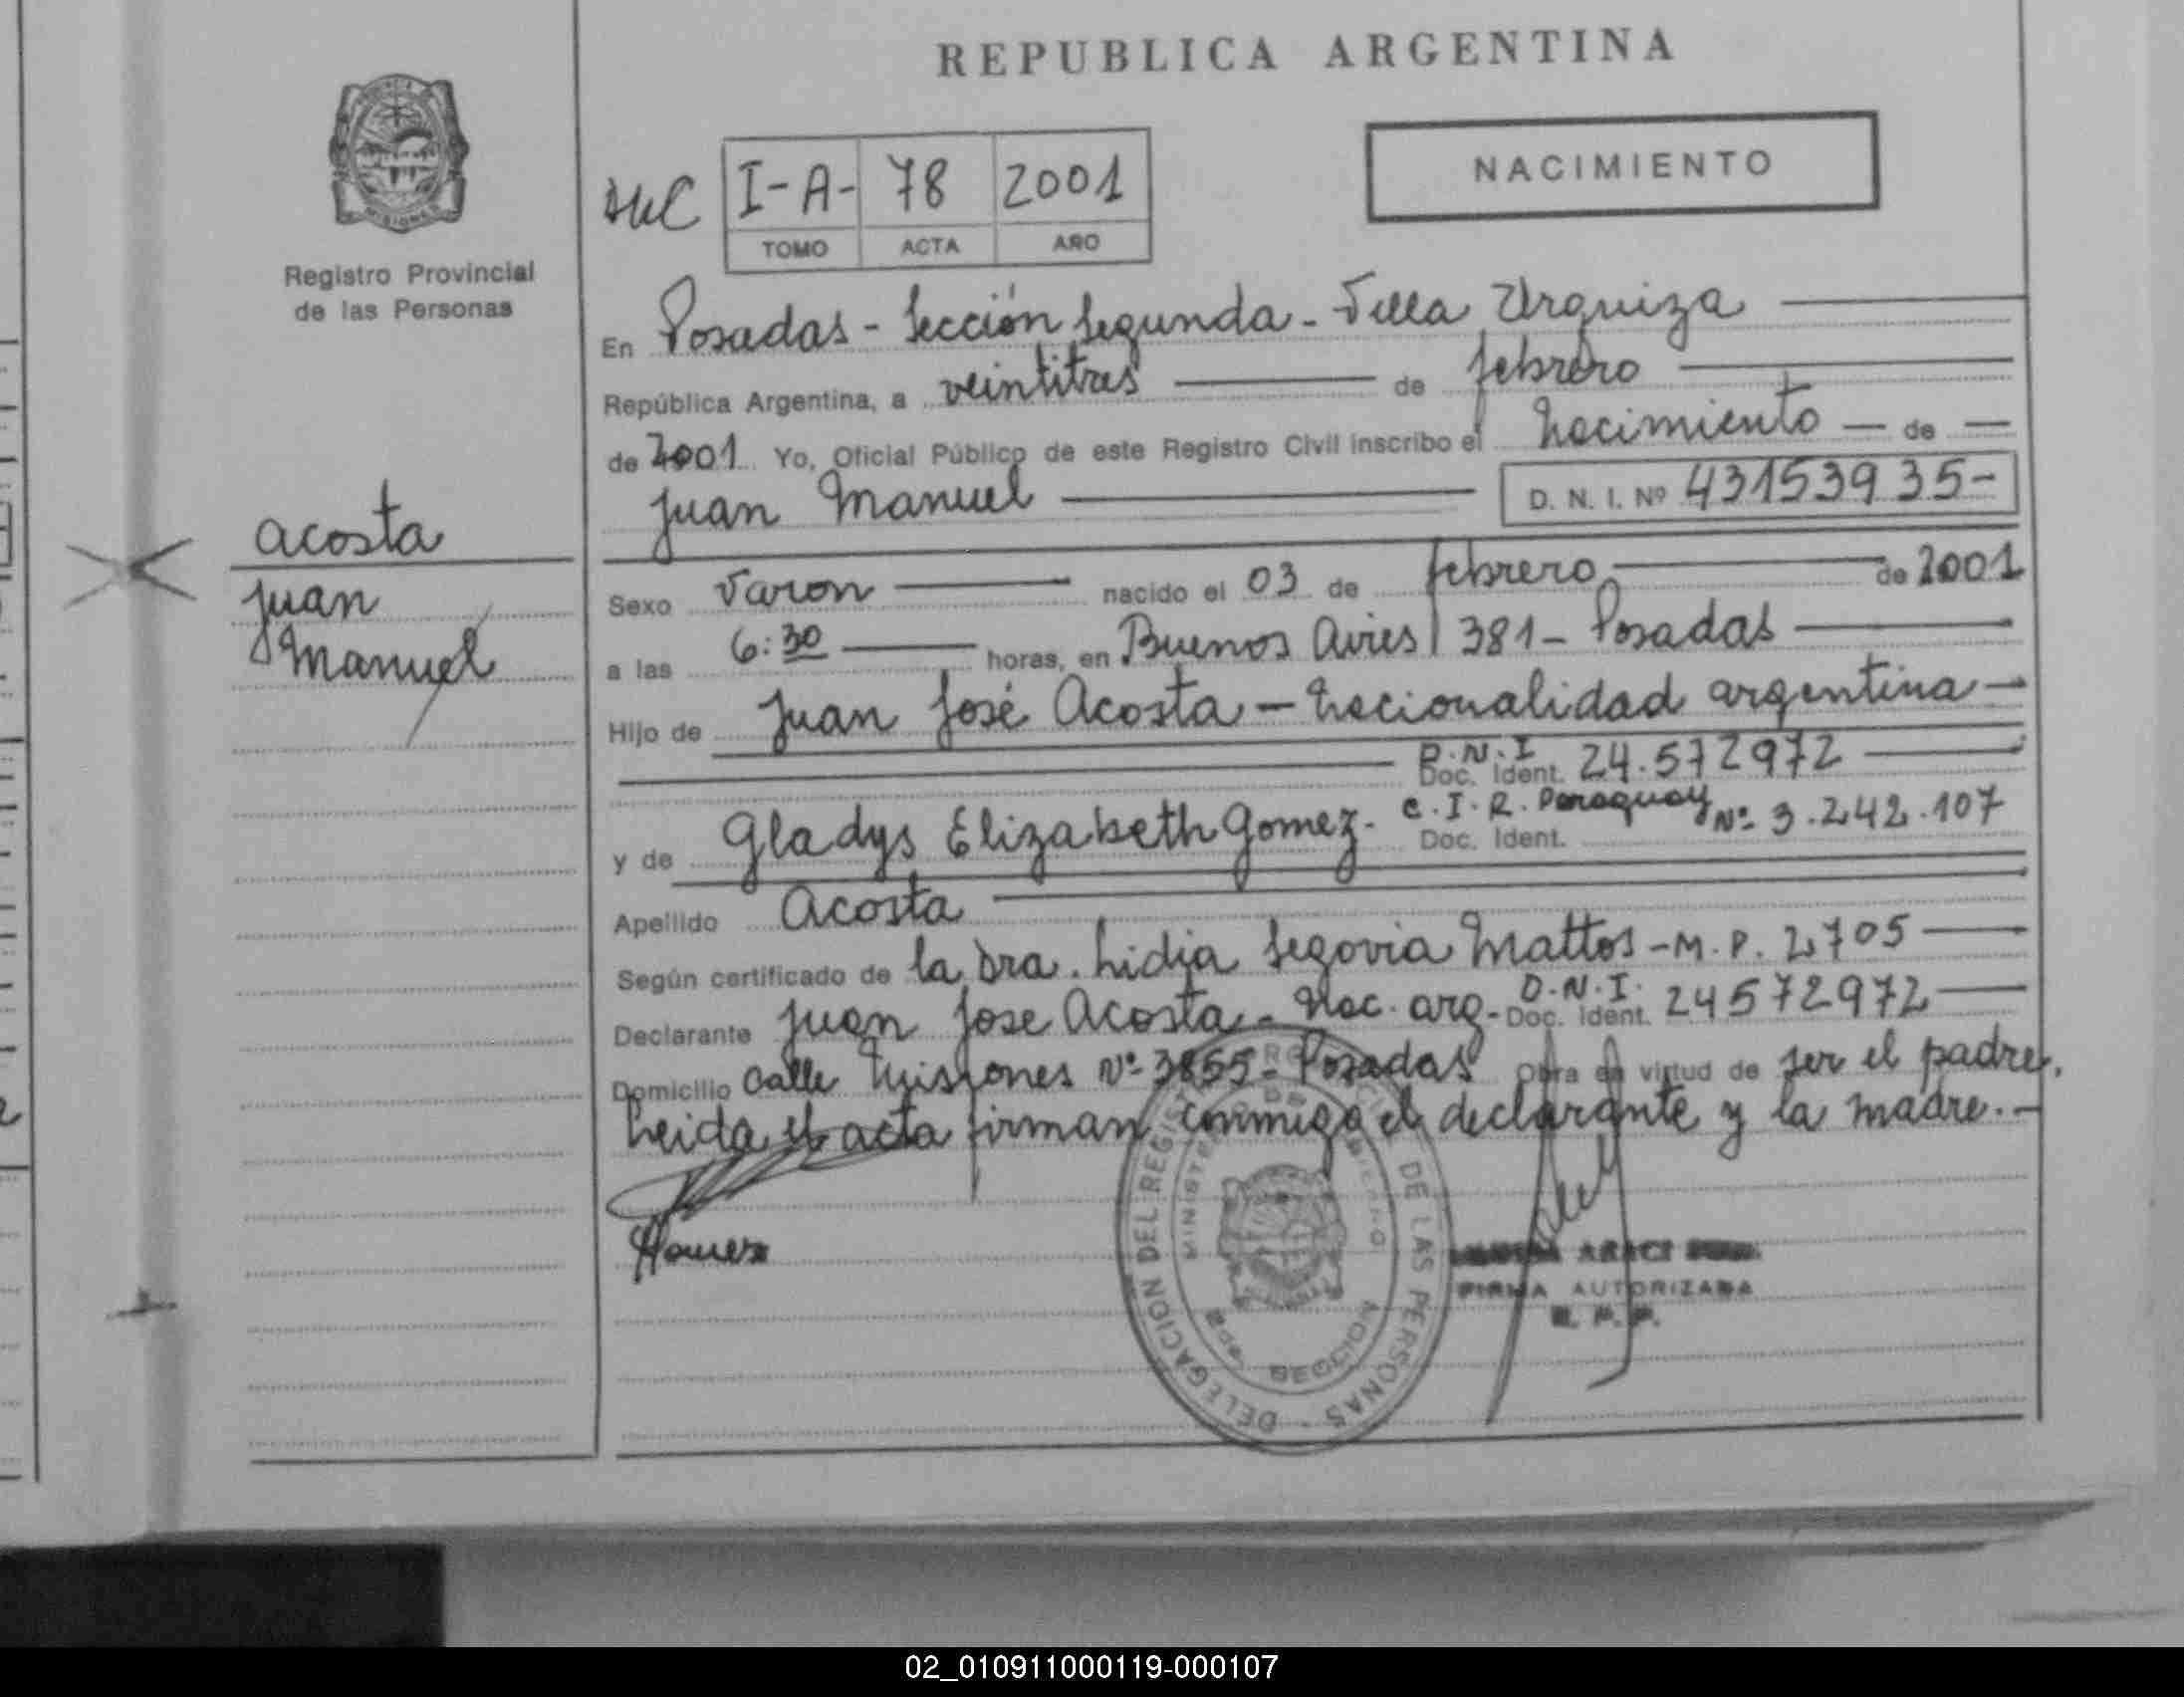 REPUBLICA ARGENTINA
NACIMIENTO
I-A- 78 2001
TOMO ACTA AÑO
Registro Provincial
de las Personas
En Posadas - Sección Segunda - Villa Urquiza
República Argentina, a veintitres de febrero
de 2001 Yo, Oficial Público de este Registro Civil inscribo el Nacimiento de
Juan Manuel D. N. I. Nº 43153935-
acosta
Juan
Manuel
Sexo Varon nacido el 03 de febrero de 2001
a las 6:30 horas, en Buenos Aires 381 - Posadas
Hijo de Juan José Acosta - Nacionalidad argentina
D.N.I Doc. Ident. 24.572972
y de Gladys Elizabeth Gomez. C.I.R. Paraguay Doc. Ident. Nº 3.242.107
Apellido Acosta
Según certificado de la Dra. Lidia Segovia Mattos - M.P. 2705
Declarante Juan Jose Acosta - Nac. arg. - D.N.I. Doc. Ident. 24572972
Domicilio Calle Misiones Nº 3855 - Posadas Obra en virtud de ser el padre.
Leida el acta firman conmigo el declarante y la madre. -
DELEGACION DEL REGISTRO DE LAS PERSONAS
MINISTERIO DE
SECCION
ARACI
FIRMA AUTORIZADA
02_010911000119-000107